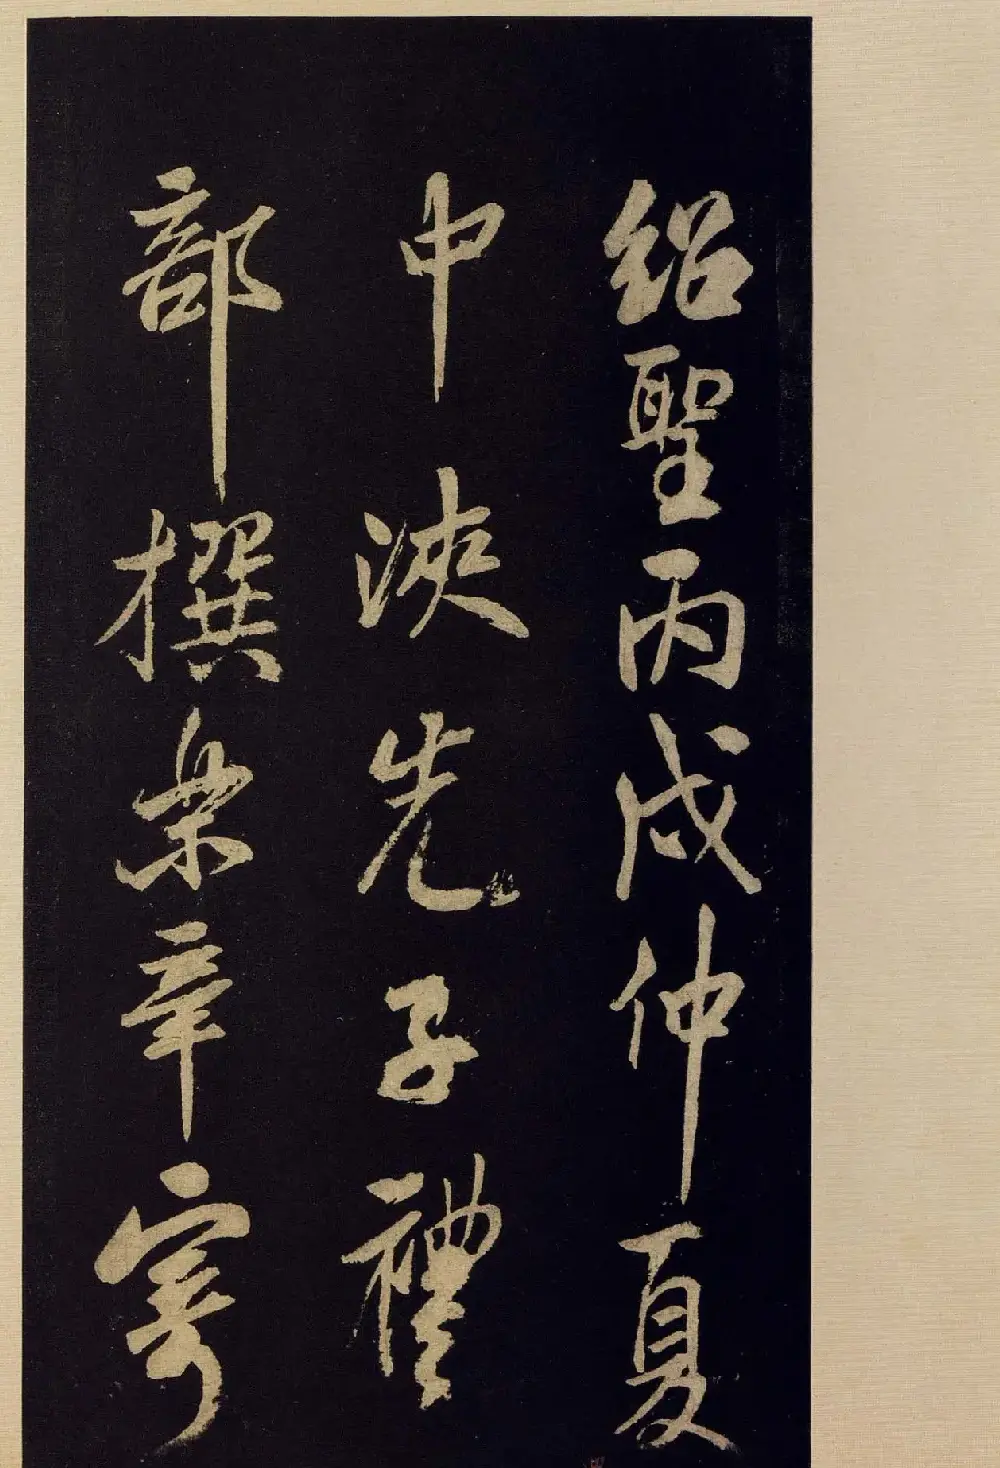 紹聖丙戌仲夏
中浹先子禮
部撰樂章寄